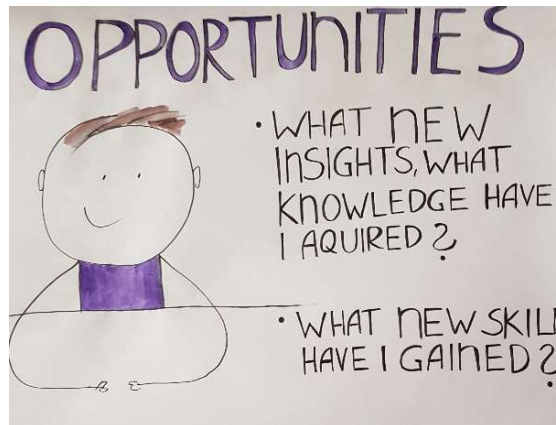 OPPORTUNITIES
• WHAT NEW
INSIGHTS, WHAT
KNOWLEDGE HAVE
I AQUIRED?
• WHAT NEW SKILL
HAVE I GAINED?